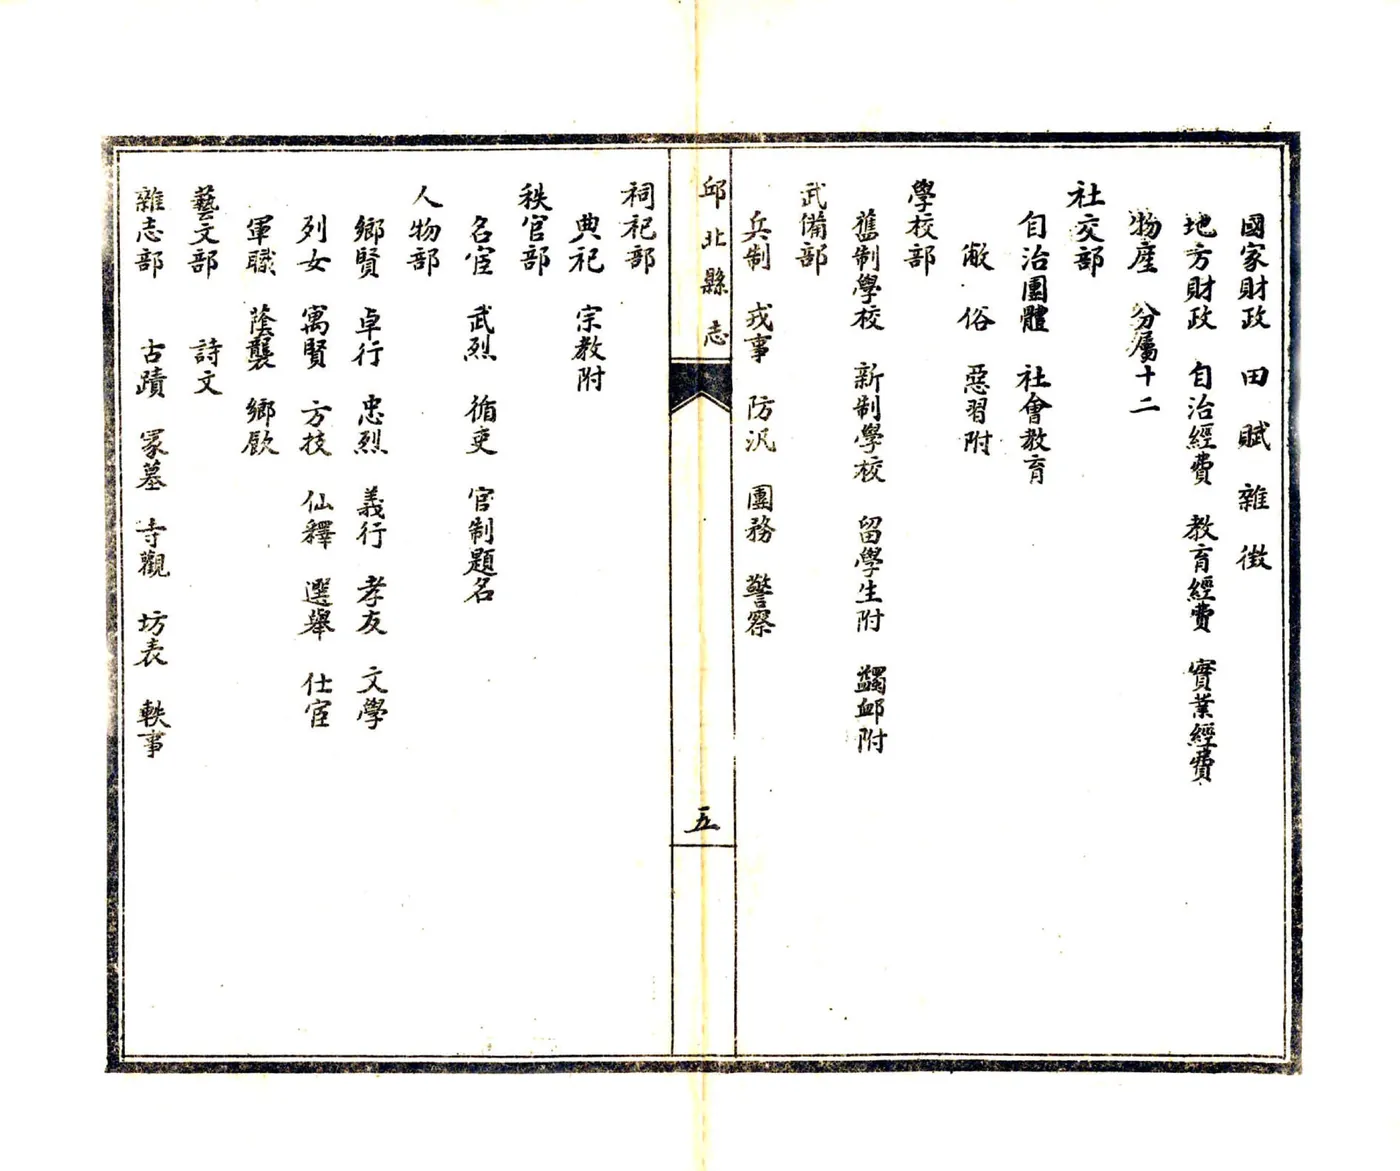 國家財政　田賦雜徴
地方財政　自治經費　教育經費　實業經費
物産　分屬十二
社交部
自治團體　社會教育
敝俗　惡習附
學校部
舊制學校　新制學校　留學生附　蠲卹附
武備部
兵制　戎事　防汎　團務　警察
邱北縣志
五
祠祀部
典祀　宗教附
秩官部
名宦　武烈　循吏　官制題名
人物部
鄉賢　卓行　忠烈　義行　孝友　文學
列女　寓賢　方技　仙釋　選舉　仕宦
軍職　蔭襲　鄉飲
藝文部　詩文
雜志部　古蹟　冢墓　寺觀　坊表　軼事